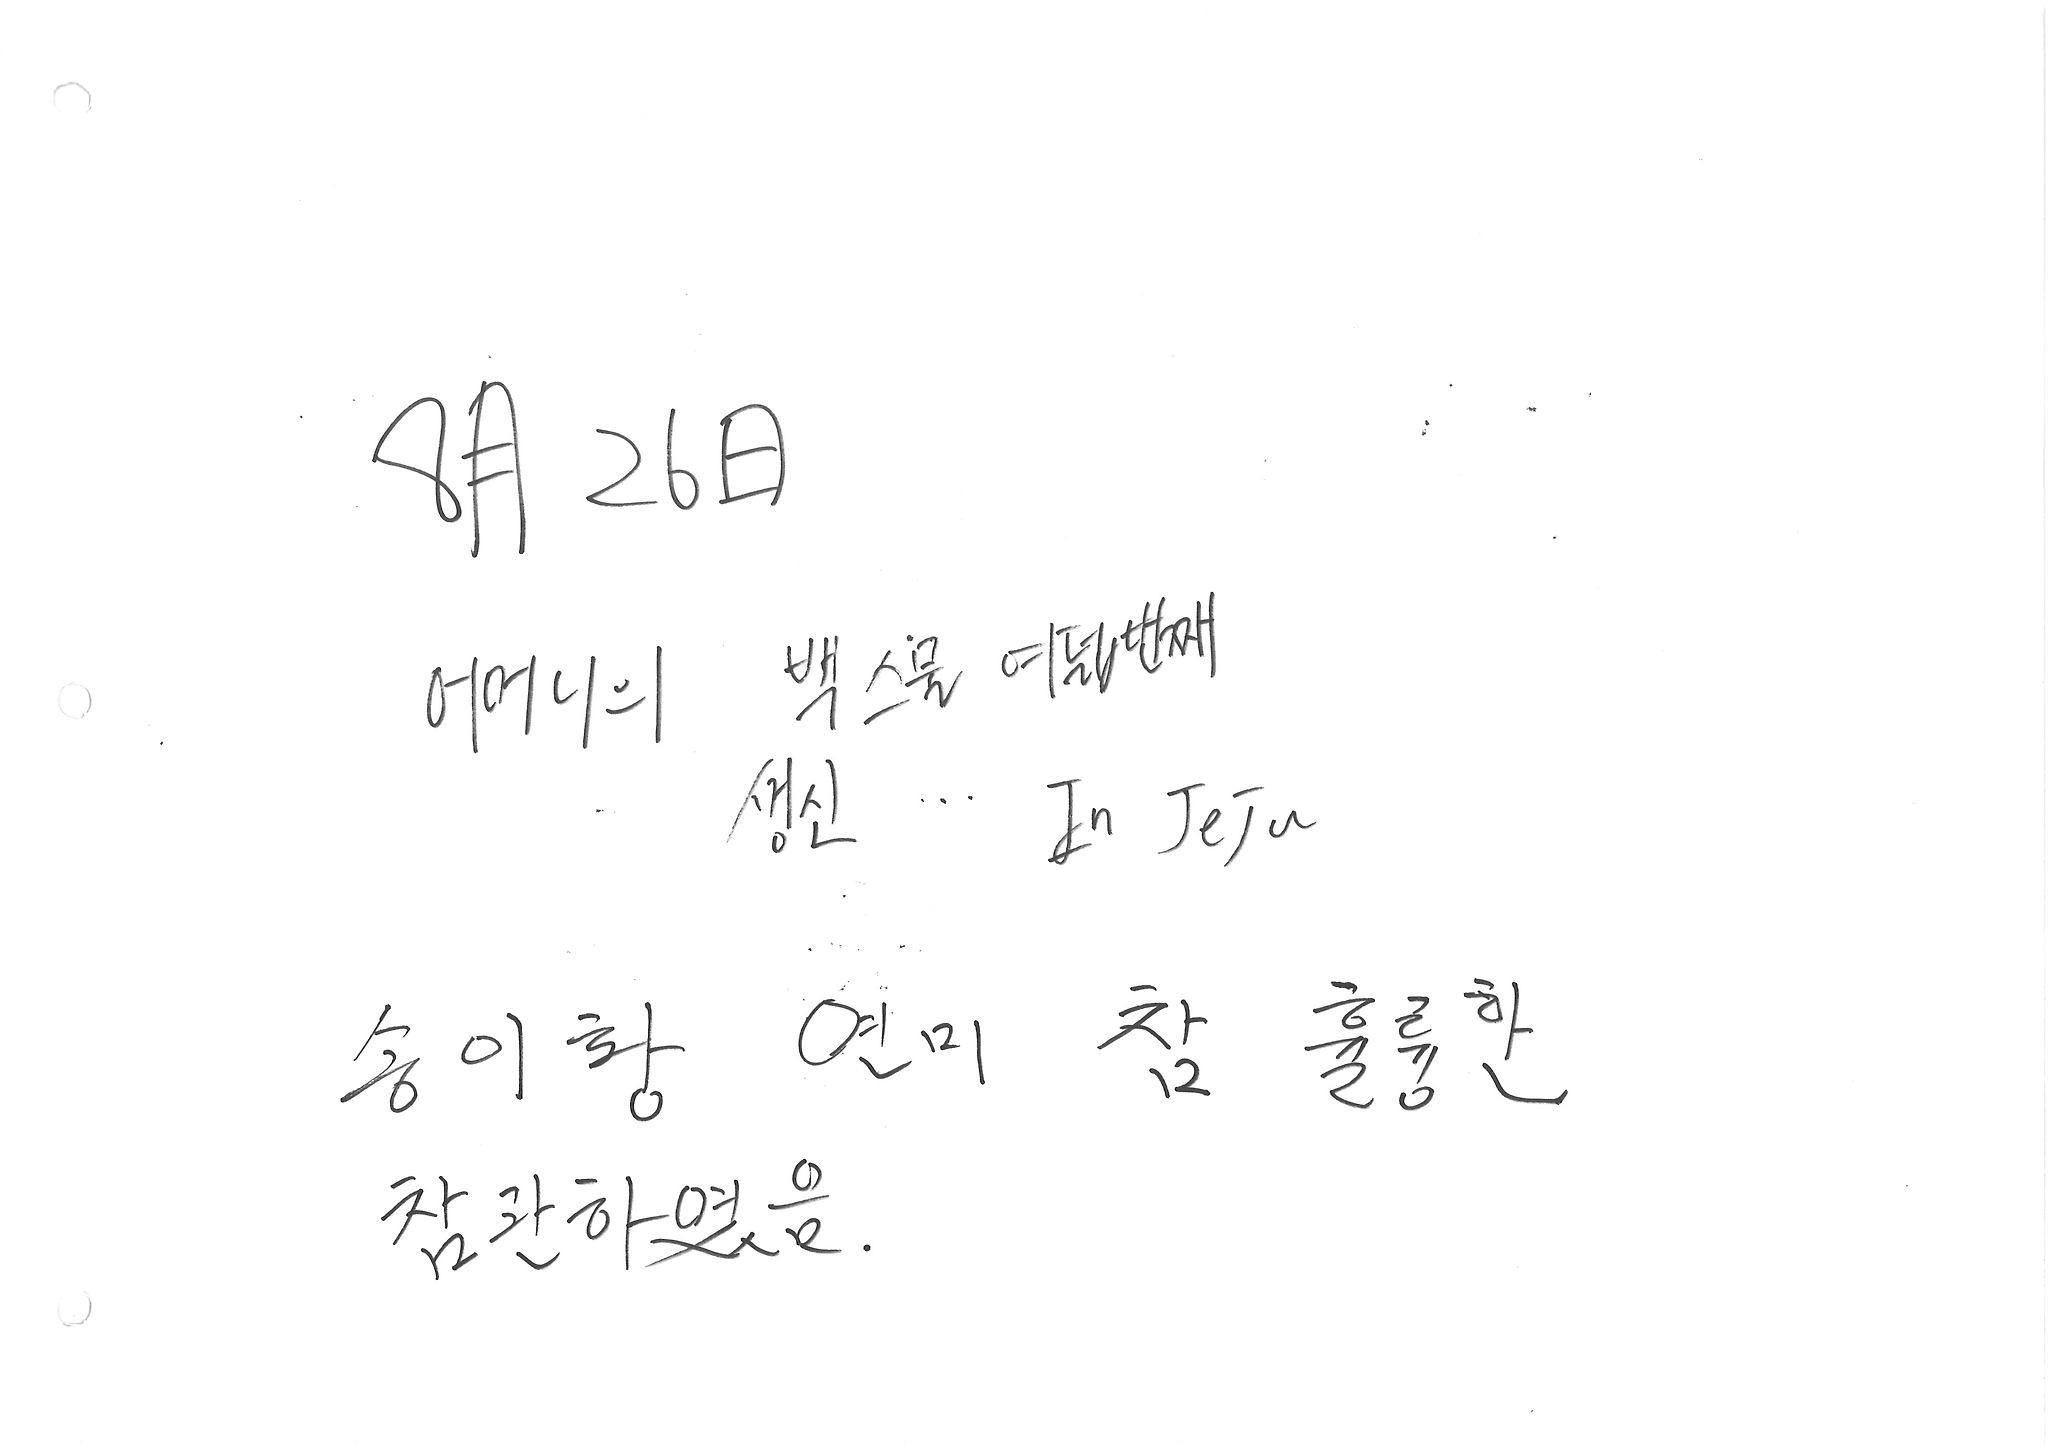 8月 26日
어머니의 백스물 여덟번째
생신 ... In JeJu
송이황 연미 참 훌륭한
참관하였음.